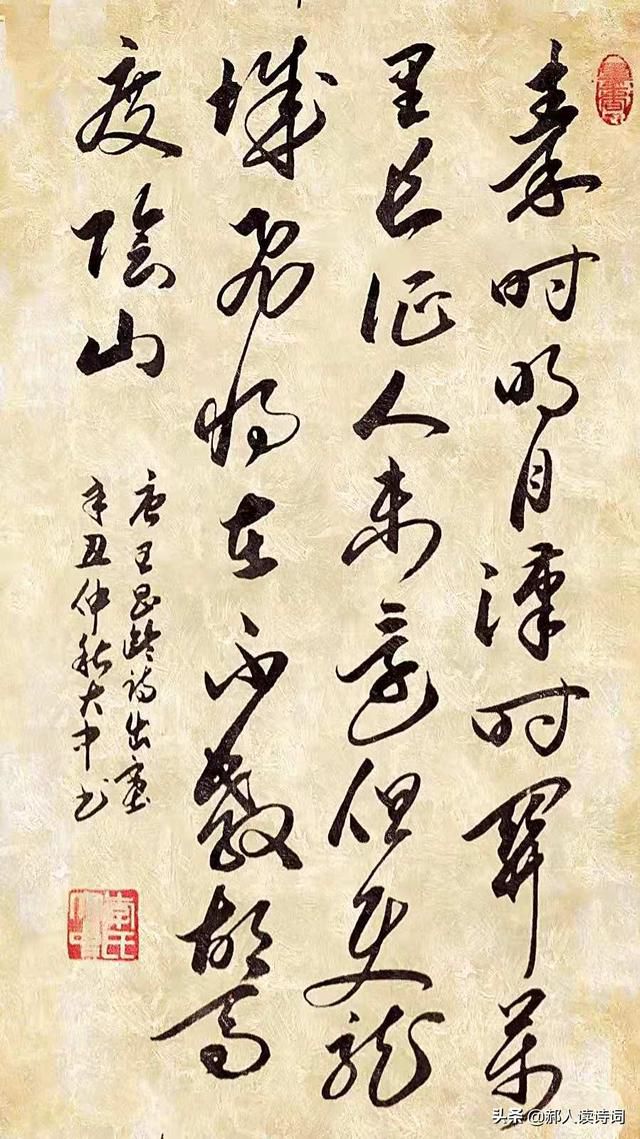 秦时明月漢时関萬
里长征人未還但使龙
城飛将在不教胡馬
度陰山
唐王昌龄诗出塞
辛丑仲秋大中书
头条 @郝人读诗词